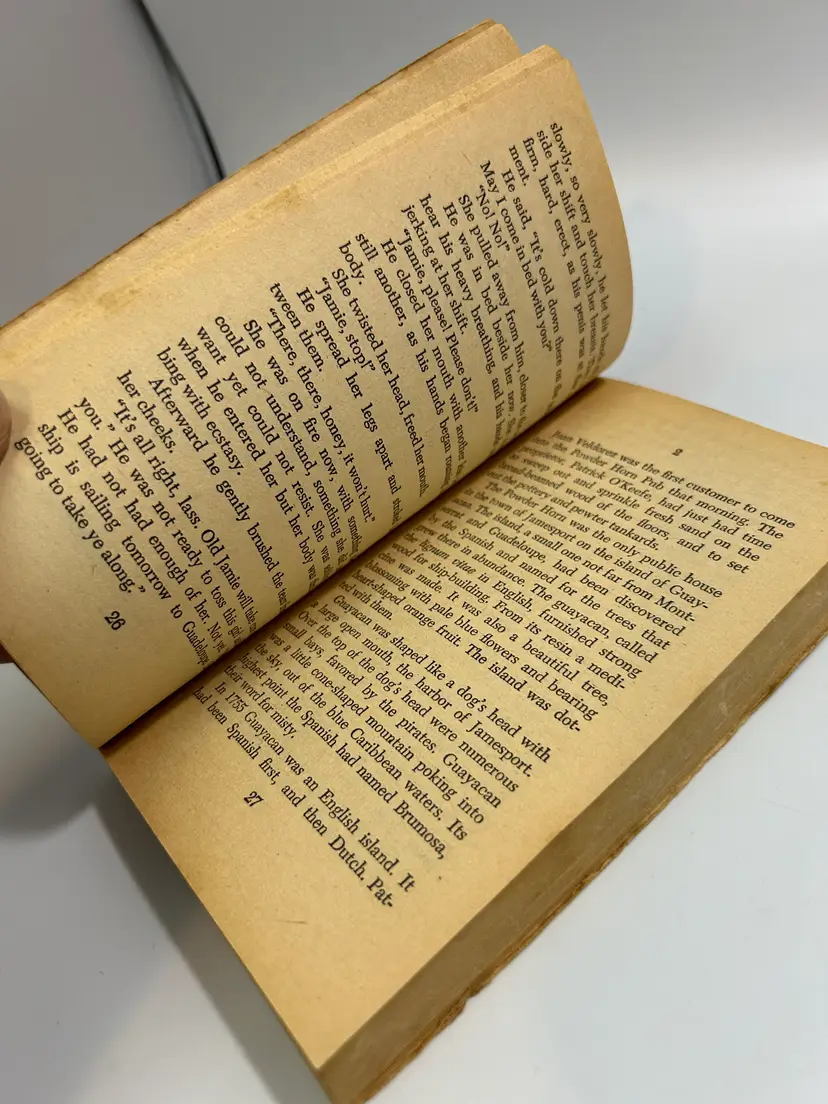 slowly, so very slowly, he let his hand
side her shift and touch her breasts.
firm, hard, erect, as his penis was at
ment.
He said, "It's cold down there on the
May I come in bed with you?"
"No! No!"
She pulled away from him, closer to the
He was in bed beside her now. She
hear his heavy breathing, and his hands
jerking at her shift.
"Jamie, please! Please don't!"
He closed her mouth with another
still another, as his hands began
body.
She twisted her head, freed her mouth.
"Jamie, stop!"
He spread her legs apart and
tween them.
"There, there, honey, it won't hurt."
She was on fire now, with something
could not understand, something she
want yet could not resist. She was
when he entered her but her body was
bing with ecstasy.
Afterward he gently brushed the tears
her cheeks.
"It's all right, lass. Old Jamie will take
you." He was not ready to toss this girl
He had not had enough of her. Not yet.
ship is sailing tomorrow to Guadeloupe,
going to take ye along."
26
2
Juan Veldorez was the first customer to come
into the Powder Horn Pub that morning. The
proprietor, Patrick O'Keefe, had just had time
to sweep out and sprinkle fresh sand on the
boned wood of the floors, and to set
out the pottery and pewter tankards.
The Powder Horn was the only public house
in the town of Jamesport on the island of Guay-
acan. The island, a small one not far from Mont-
serrat and Guadeloupe, had been discovered
by the Spanish and named for the trees that
grew there in abundance. The guayacan, called
the lignum vitae in English, furnished strong
wood for ship-building. From its resin a medi-
cine was made. It was also a beautiful tree,
blossoming with pale blue flowers and bearing
heart-shaped orange fruit. The island was dot-
ted with them.
Guayacan was shaped like a dog's head with
a large open mouth, the harbor of Jamesport.
Over the top of the dog's head were numerous
small bays, favored by the pirates. Guayacan
was a little cone-shaped mountain poking into
the sky, out of the blue Caribbean waters. Its
highest point the Spanish had named Brumosa,
their word for misty.
In 1755 Guayacan was an English island. It
had been Spanish first, and then Dutch. Pat-
27